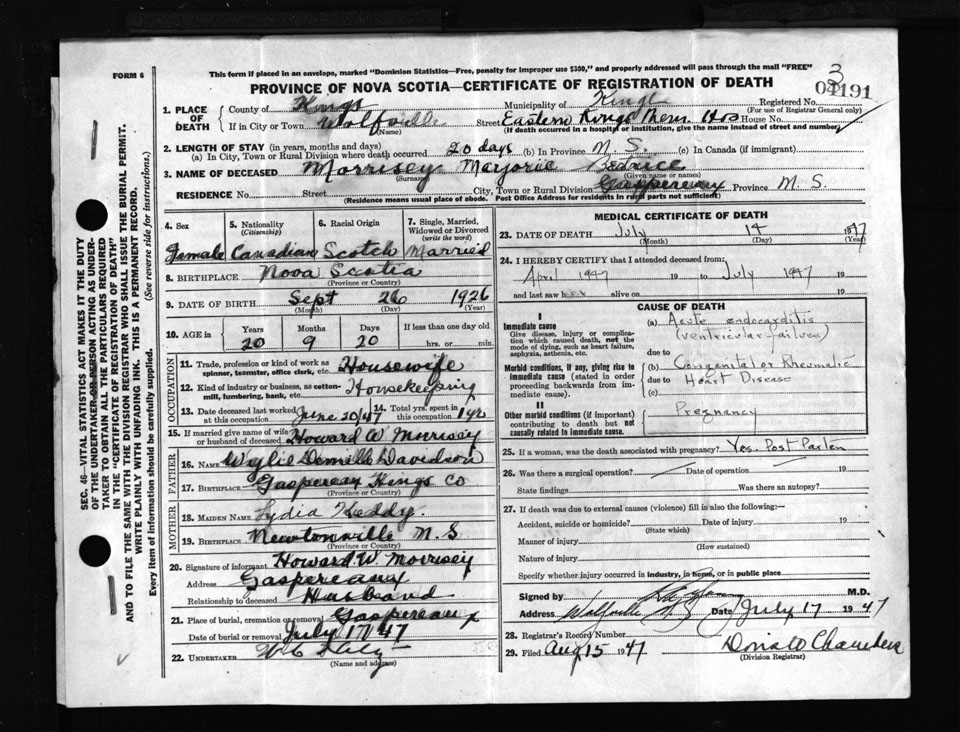 This form if placed in an envelope, marked "Dominion Statistics—Free, penalty for improper use $300," and properly addressed will pass through the mail "FREE"
FORM 6
PROVINCE OF NOVA SCOTIA—CERTIFICATE OF REGISTRATION OF DEATH
3
04191
1. PLACE OF DEATH
County of Kings
Municipality of Kings
Registered No.
(For use of Registrar General only)
If in City or Town Wolfville (Name)
Street Eastern Kings Mem. Hos House No.
(If death occurred in a hospital or institution, give the name instead of street and number)
2. LENGTH OF STAY (in years, months and days)
(a) In City, Town or Rural Division where death occurred 20 days (b) In Province N. S. (c) In Canada (if immigrant)
3. NAME OF DECEASED Morrisey Marjorie Beatrice
(Surname) (Given name or names)
RESIDENCE No. Street City, Town or Rural Division Gaspereaux Province N. S.
(Residence means usual place of abode. Post Office Address for residents in rural parts not sufficient)
4. Sex Female
5. Nationality (Citizenship) Canadian
6. Racial Origin Scotch
7. Single, Married, Widowed or Divorced (write the word) Married
8. BIRTHPLACE Nova Scotia
(Province or Country)
9. DATE OF BIRTH Sept 26 1926
(Month) (Day) (Year)
10. AGE in Years Months Days If less than one day old
20 9 20 hrs. or min.
OCCUPATION
11. Trade, profession or kind of work as spinner, teamster, office clerk, etc. Housewife
12. Kind of industry or business, as cotton-mill, lumbering, bank, etc. Housekeeping
13. Date deceased last worked at this occupation June 20/47 14. Total yrs. spent in this occupation 1 yr
15. If married give name of wife or husband of deceased Howard W Morrisey
FATHER
16. Name Wylie Demille Davidson
17. Birthplace Gaspereau Kings Co
(Province or Country)
MOTHER
18. Maiden Name Lydia Keddy.
19. Birthplace Newtonville N. S
(Province or Country)
20. Signature of informant Howard W. Morrisey
Address Gaspereaux
Relationship to deceased Husband
21. Place of burial, cremation or removal Gaspereaux
Date of burial or removal July 17/47
22. UNDERTAKER W C
(Name and address)
MEDICAL CERTIFICATE OF DEATH
23. DATE OF DEATH July 14 1947
(Month) (Day) (Year)
24. I HEREBY CERTIFY that I attended deceased from:
April 1947 19 to July 1947 19
and last saw her alive on 19
CAUSE OF DEATH
I
Immediate cause
Give disease, injury or complication which caused death, not the mode of dying, such as heart failure, asphyxia, asthenia, etc.
(a) Acute endocarditis
(ventricular failure)
due to
Morbid conditions, if any, giving rise to immediate cause (stated in order proceeding backwards from immediate cause).
(b) Congenital or Rheumatic
due to Heart Disease
(c)
II
Other morbid conditions (if important) contributing to death but not causally related to immediate cause.
Pregnancy
25. If a woman, was the death associated with pregnancy? Yes. Post Partem
26. Was there a surgical operation? Date of operation 19
State findings Was there an autopsy?
27. If death was due to external causes (violence) fill in also the following:
Accident, suicide or homicide? Date of injury 19
(State which)
Manner of injury
(How sustained)
Nature of injury
Specify whether injury occurred in industry, in home, or in public place
Signed by M.D.
Address Wolfville N S Date July 17 1947
28. Registrar's Record Number
29. Filed Aug 15 1947 Doris W Chambers
(Division Registrar)
SEC. 46—VITAL STATISTICS ACT MAKES IT THE DUTY
OF THE UNDERTAKER OR PERSON ACTING AS UNDER-
TAKER TO OBTAIN ALL THE PARTICULARS REQUIRED
IN THE "CERTIFICATE OF REGISTRATION OF DEATH"
AND TO FILE THE SAME WITH THE DIVISION REGISTRAR WHO SHALL ISSUE THE BURIAL PERMIT.
WRITE PLAINLY WITH UNFADING INK. THIS IS A PERMANENT RECORD.
Every item of information should be carefully supplied. (See reverse side for instructions.)